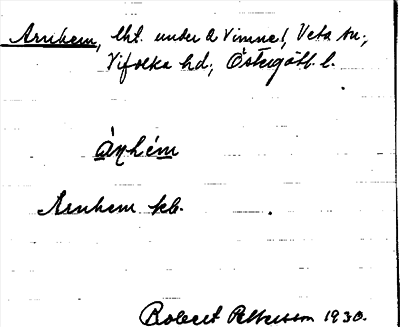 Arnhem, lht. under Ö Vimne!, Veta sn.,
Vifolka hd., Östergötl. l.
áṇhém
Arnhem kb.
Robert Pettersson 1930.